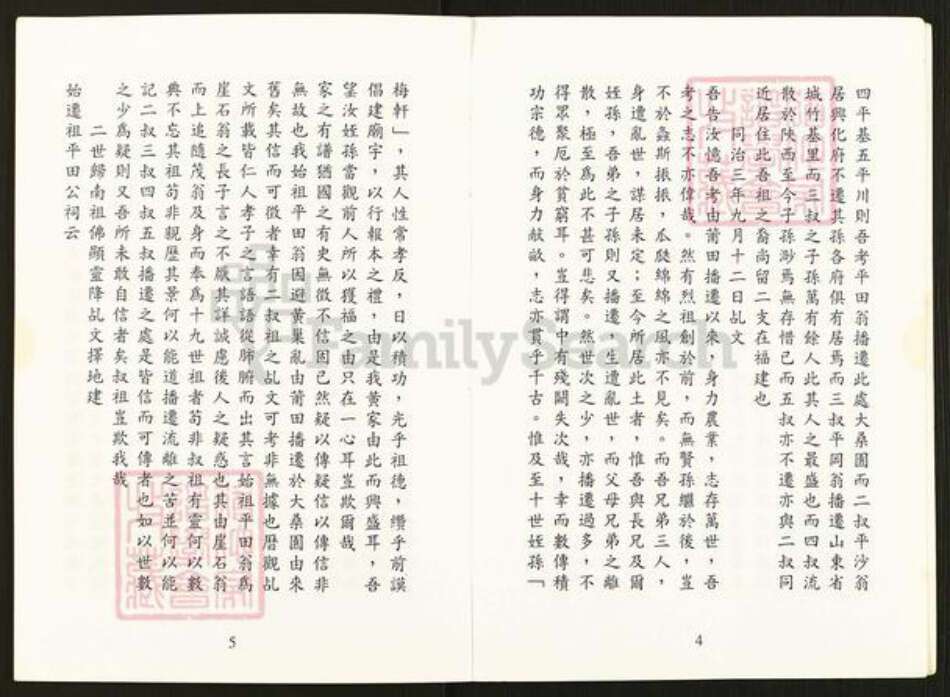 四平基五平川則吾考平田翁播遷此處大桑園而二叔平沙翁
居興化府不遷其孫各府俱有居焉而三叔平岡翁播遷山東省
城竹基里而三叔之子孫萬有餘人此其人之最盛也而四叔流
散於陝西至今子孫渺焉無存惜已而五叔亦不遷亦與二叔同
近居住此吾祖之裔尚留二支在福建也
同治三年九月十二日乩文
吾告汝憶吾考由莆田播遷以來，身力農業，志存萬世，吾
考之志不亦偉哉。然有烈祖創於前，而無賢孫繼於後，豈
不於螽斯振振，瓜瓞綿綿之風亦不見矣。而吾兄弟三人，
身遭亂世，謀居未定；至今所居此土者，惟吾與長兄及爾
姪孫，吾弟之子孫則又播遷，一生遭亂世，而父母兄弟之離
散，極至為此不甚可悲矣。然世次之少，亦播遷過多，不
得眾聚厄於貧窮耳。豈得謂中有殘闕失次哉，幸而數傳積
功宗德，而身力猷畝，志亦貫乎千古。惟及至十世姪孫「
4
梅軒」，其人性常孝反，日以積功，光乎祖德，纘乎前謨
倡建廟宇，以行報本之禮，由是我黃家由此而興盛耳，吾
望汝姪孫當觀前人所以獲福之由只在一心耳豈欺爾哉
家之有譜猶國之有史無徵不信固已然疑以傳疑信以傳信非
無故也我始祖平田翁因避黃巢亂由莆田播遷於大桑園由來
舊矣其信而可徵者幸有二叔祖之乩文可考非無據也曆觀乩
文所載皆仁人孝子之言語語從肺腑而出其言始祖平田翁為
崖石翁之長子言之不厭其詳誠慮後人之疑惑也其由崖石翁
而上追隨茂翁及身而奉為十九世祖者苟非叔祖有靈何以數
典不忘其祖苟非親歷其景何以能道播遷流離之苦並何以能
記二叔三叔四叔五叔播遷之處是皆信而可傳者也如以世數
之少為疑則又吾所未敢自信者矣叔祖豈欺我哉
二世歸南祖佛顯靈降乩文擇地建
始遷祖平田公祠云
5
FamilySearch